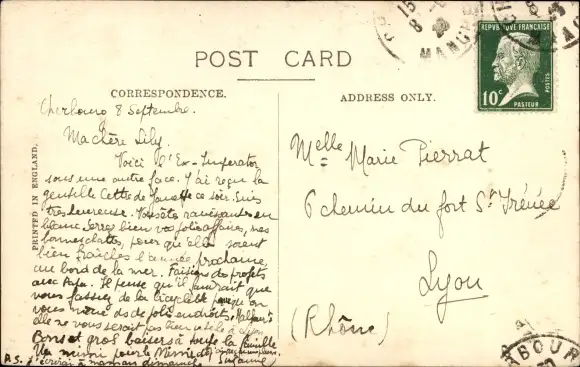 POST CARD
CORRESPONDENCE.
ADDRESS ONLY.
PRINTED IN ENGLAND.
REPVBLIQUE FRANÇAISE
10c
POSTES
PASTEUR
MANCHE
Cherbourg 8 Septembre.
Ma chère Lily.
Voici l'Ex-Imperator
sous une autre face. J'ai reçu la
gentille lettre de ce soir. Suis
très heureuse. Vous êtes ravissantes en
blanc. Serrez bien vos jolies affaires, mes
bonnes chattes, pour qu'elles soient
bien fraîches l'année prochaine
au bord de la mer. Faisions des projets
avec Papa. Il pense qu'il faudrait que
vous fassiez de la bicyclette parce qu'on
vous mène ds de jolis endroits.
elle ne vous serait pas bien utile à Lyon
Bons et gros baisers à toute la famille
Un mimi pour le Mimi
Suzanne
P.S. J'écrirai à maman dimanche
Melle Marie Pierrat
6 chemin du fort St Irénée
Lyon
(Rhône)